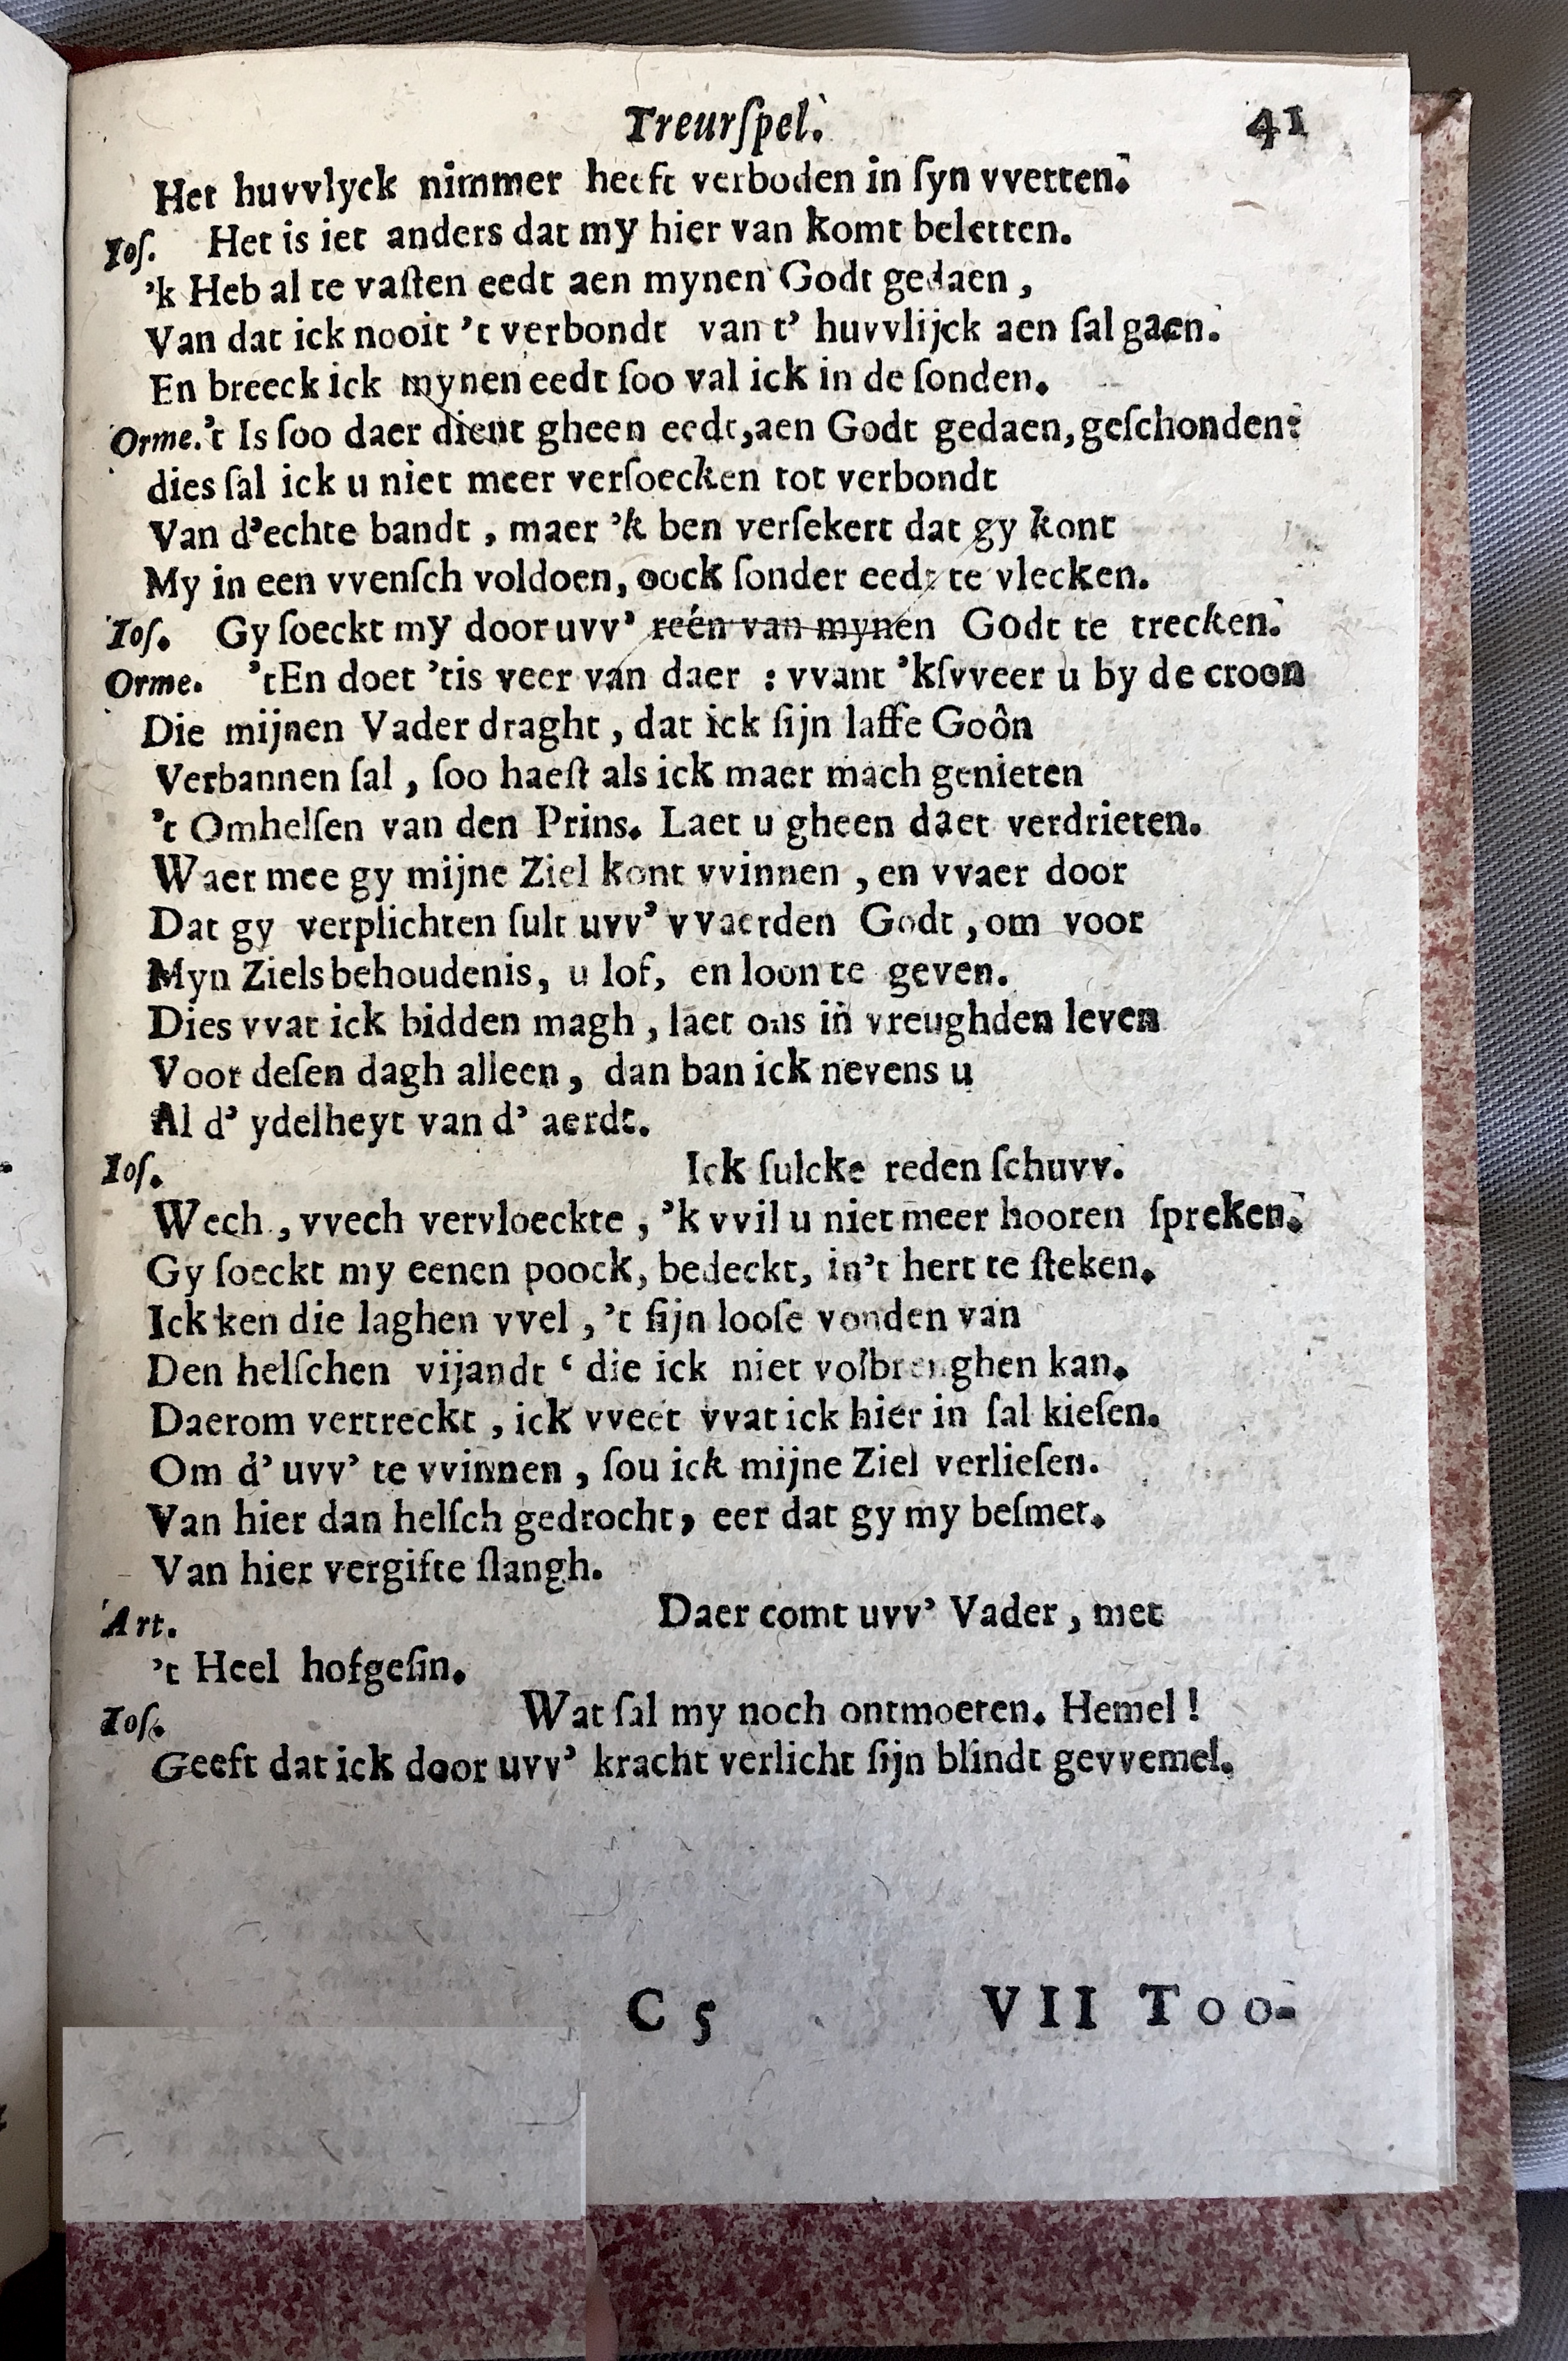 Treurſpel. 41
Het huvvlyck nimmer heeft verboden in ſyn vvetten.
Ioſ. Het is iet anders dat my hier van komt beletten.
'k Heb al te vaſten eedt aen mynen Godt gedaen,
Van dat ick nooit 't verbondt van t' huvvlijck aen ſal gaen.
En breeck ick mynen eedt ſoo val ick in de ſonden.
Orme. 't Is ſoo daer dient gheen eedt, aen Godt gedaen, geſchonden:
dies ſal ick u niet meer verſoecken tot verbondt
Van d'echte bandt, maer 'k ben verſekert dat gy kont
My in een vvenſch voldoen, oock ſonder eedt te vlecken.
Ioſ. Gy ſoeckt my door uvv' reén van mynen Godt te trecken.
Orme. 'tEn doet 'tis veer van daer : vvant 'kſvveer u by de croon
Die mijnen Vader draght, dat ick ſijn laffe Goôn
Verbannen ſal, ſoo haeſt als ick maer mach genieten
't Omhelſen van den Prins. Laet u gheen daet verdrieten.
Waer mee gy mijne Ziel kont vvinnen, en vvaer door
Dat gy verplichten ſult uvv' vvaerden Godt, om voor
Myn Ziels behoudenis, u lof, en loon te geven.
Dies vvat ick bidden magh, laet ons in vreughden leven
Voor deſen dagh alleen, dan ban ick nevens u
Al d' ydelheyt van d' aerdt.
Ioſ. Ick ſulcke reden ſchuvv.
Wech, vvech vervloeckte, 'k vvil u niet meer hooren ſpreken.
Gy ſoeckt my eenen poock, bedeckt, in't hert te ſteken.
Ick ken die laghen vvel, 't ſijn looſe vonden van
Den helſchen vijandt ‘ die ick niet volbrenghen kan.
Daerom vertreckt, ick vveet vvat ick hier in ſal kieſen.
Om d' uvv' te vvinnen, ſou ick mijne Ziel verlieſen.
Van hier dan helſch gedrocht, eer dat gy my beſmet.
Van hier vergifte ſlangh.
Art. Daer comt uvv' Vader, met
't Heel hofgeſin.
Ioſ. Wat ſal my noch ontmoeten. Hemel!
Geeft dat ick door uvv' kracht verlicht ſijn blindt gevvemel.
C 5 VII Too-